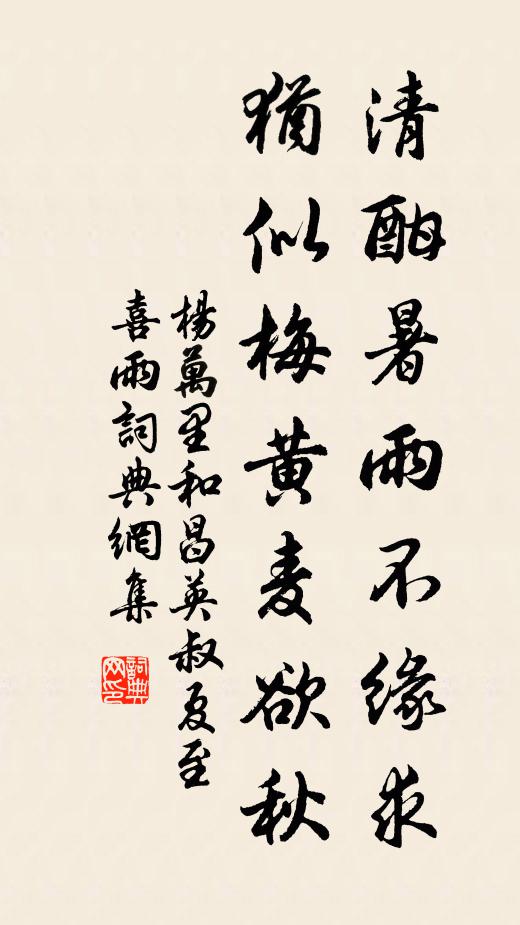 清酣暑雨不缘求
犹似梅黄麦欲秋
楊萬里和昌英叔夏至
喜雨詞典網集
詞典网印